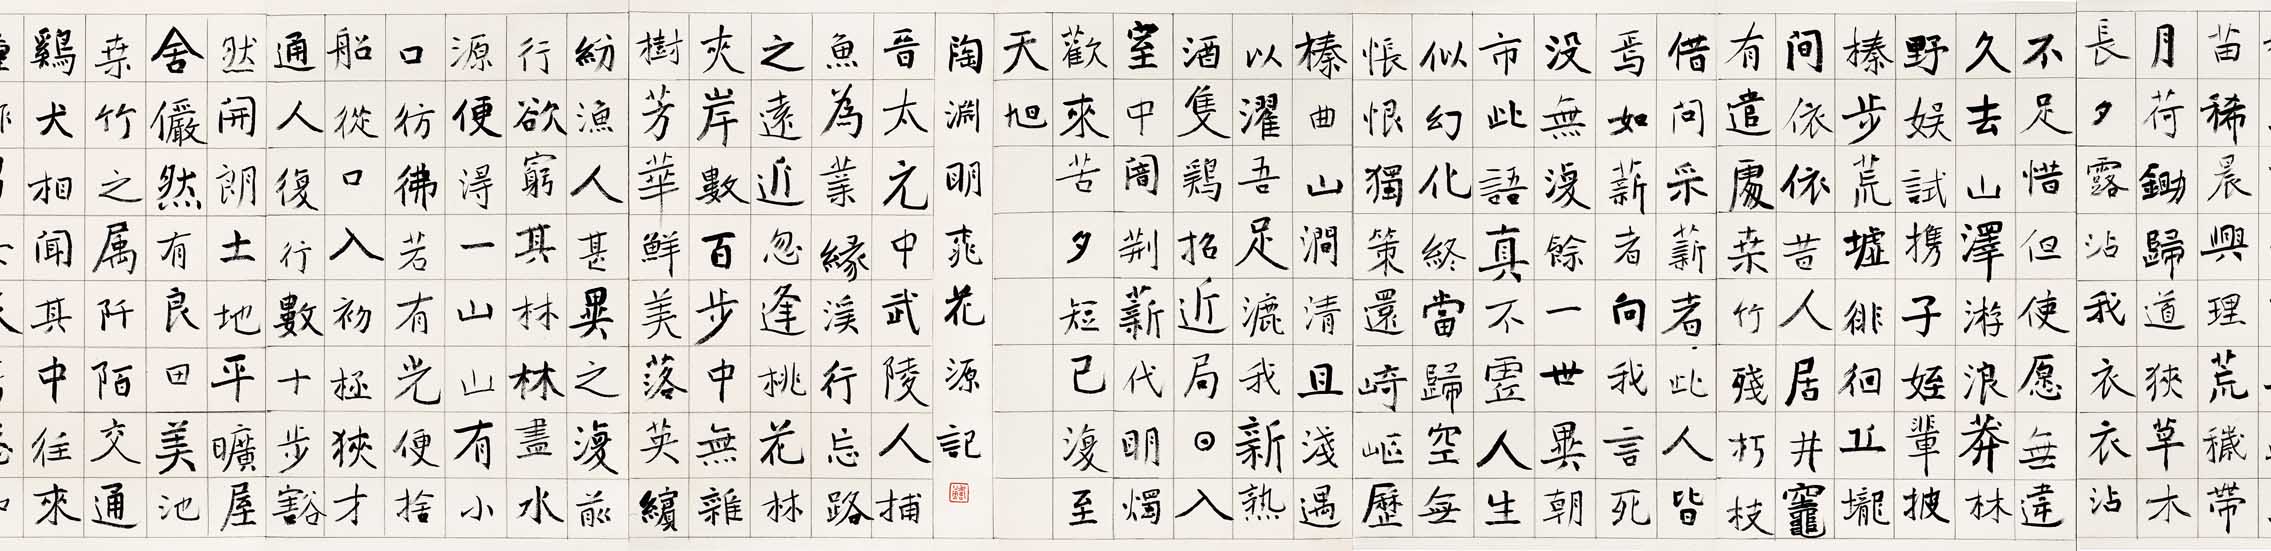 苗稀晨興理荒穢帶
月荷鋤歸道狹草木
長夕露沾我衣衣沾
不足惜但使愿無違
久去山澤游浪莽林
野娱試携子姪輩披
榛步荒墟徘徊丘壠
间依依昔人居井竈
有遺處桒竹殘朽枝
借问采薪者此人皆
焉如薪者向我言死
没無復餘一世異朝
市此語真不虚人生
似幻化終當歸空無
悵恨獨策還崎嶇歷
榛曲山澗清且淺遇
以濯吾足漉我新熟
酒隻鷄招近局日入
室中闇荆薪代明燭
歡來苦夕短已復至
天旭
陶淵明桃花源記
晉太元中武陵人捕
魚為業緣溪行忘路
之遠近忽逢桃花林
夾岸數百步中無雜
樹芳華鮮美落英繽
紛漁人甚異之復前
行欲窮其林林盡水
源便得一山山有小
口彷彿若有光便捨
船從口入初極狹才
通人復行數十步豁
然開朗土地平曠屋
舍儼然有良田美池
桒竹之属阡陌交通
鷄犬相聞其中往來